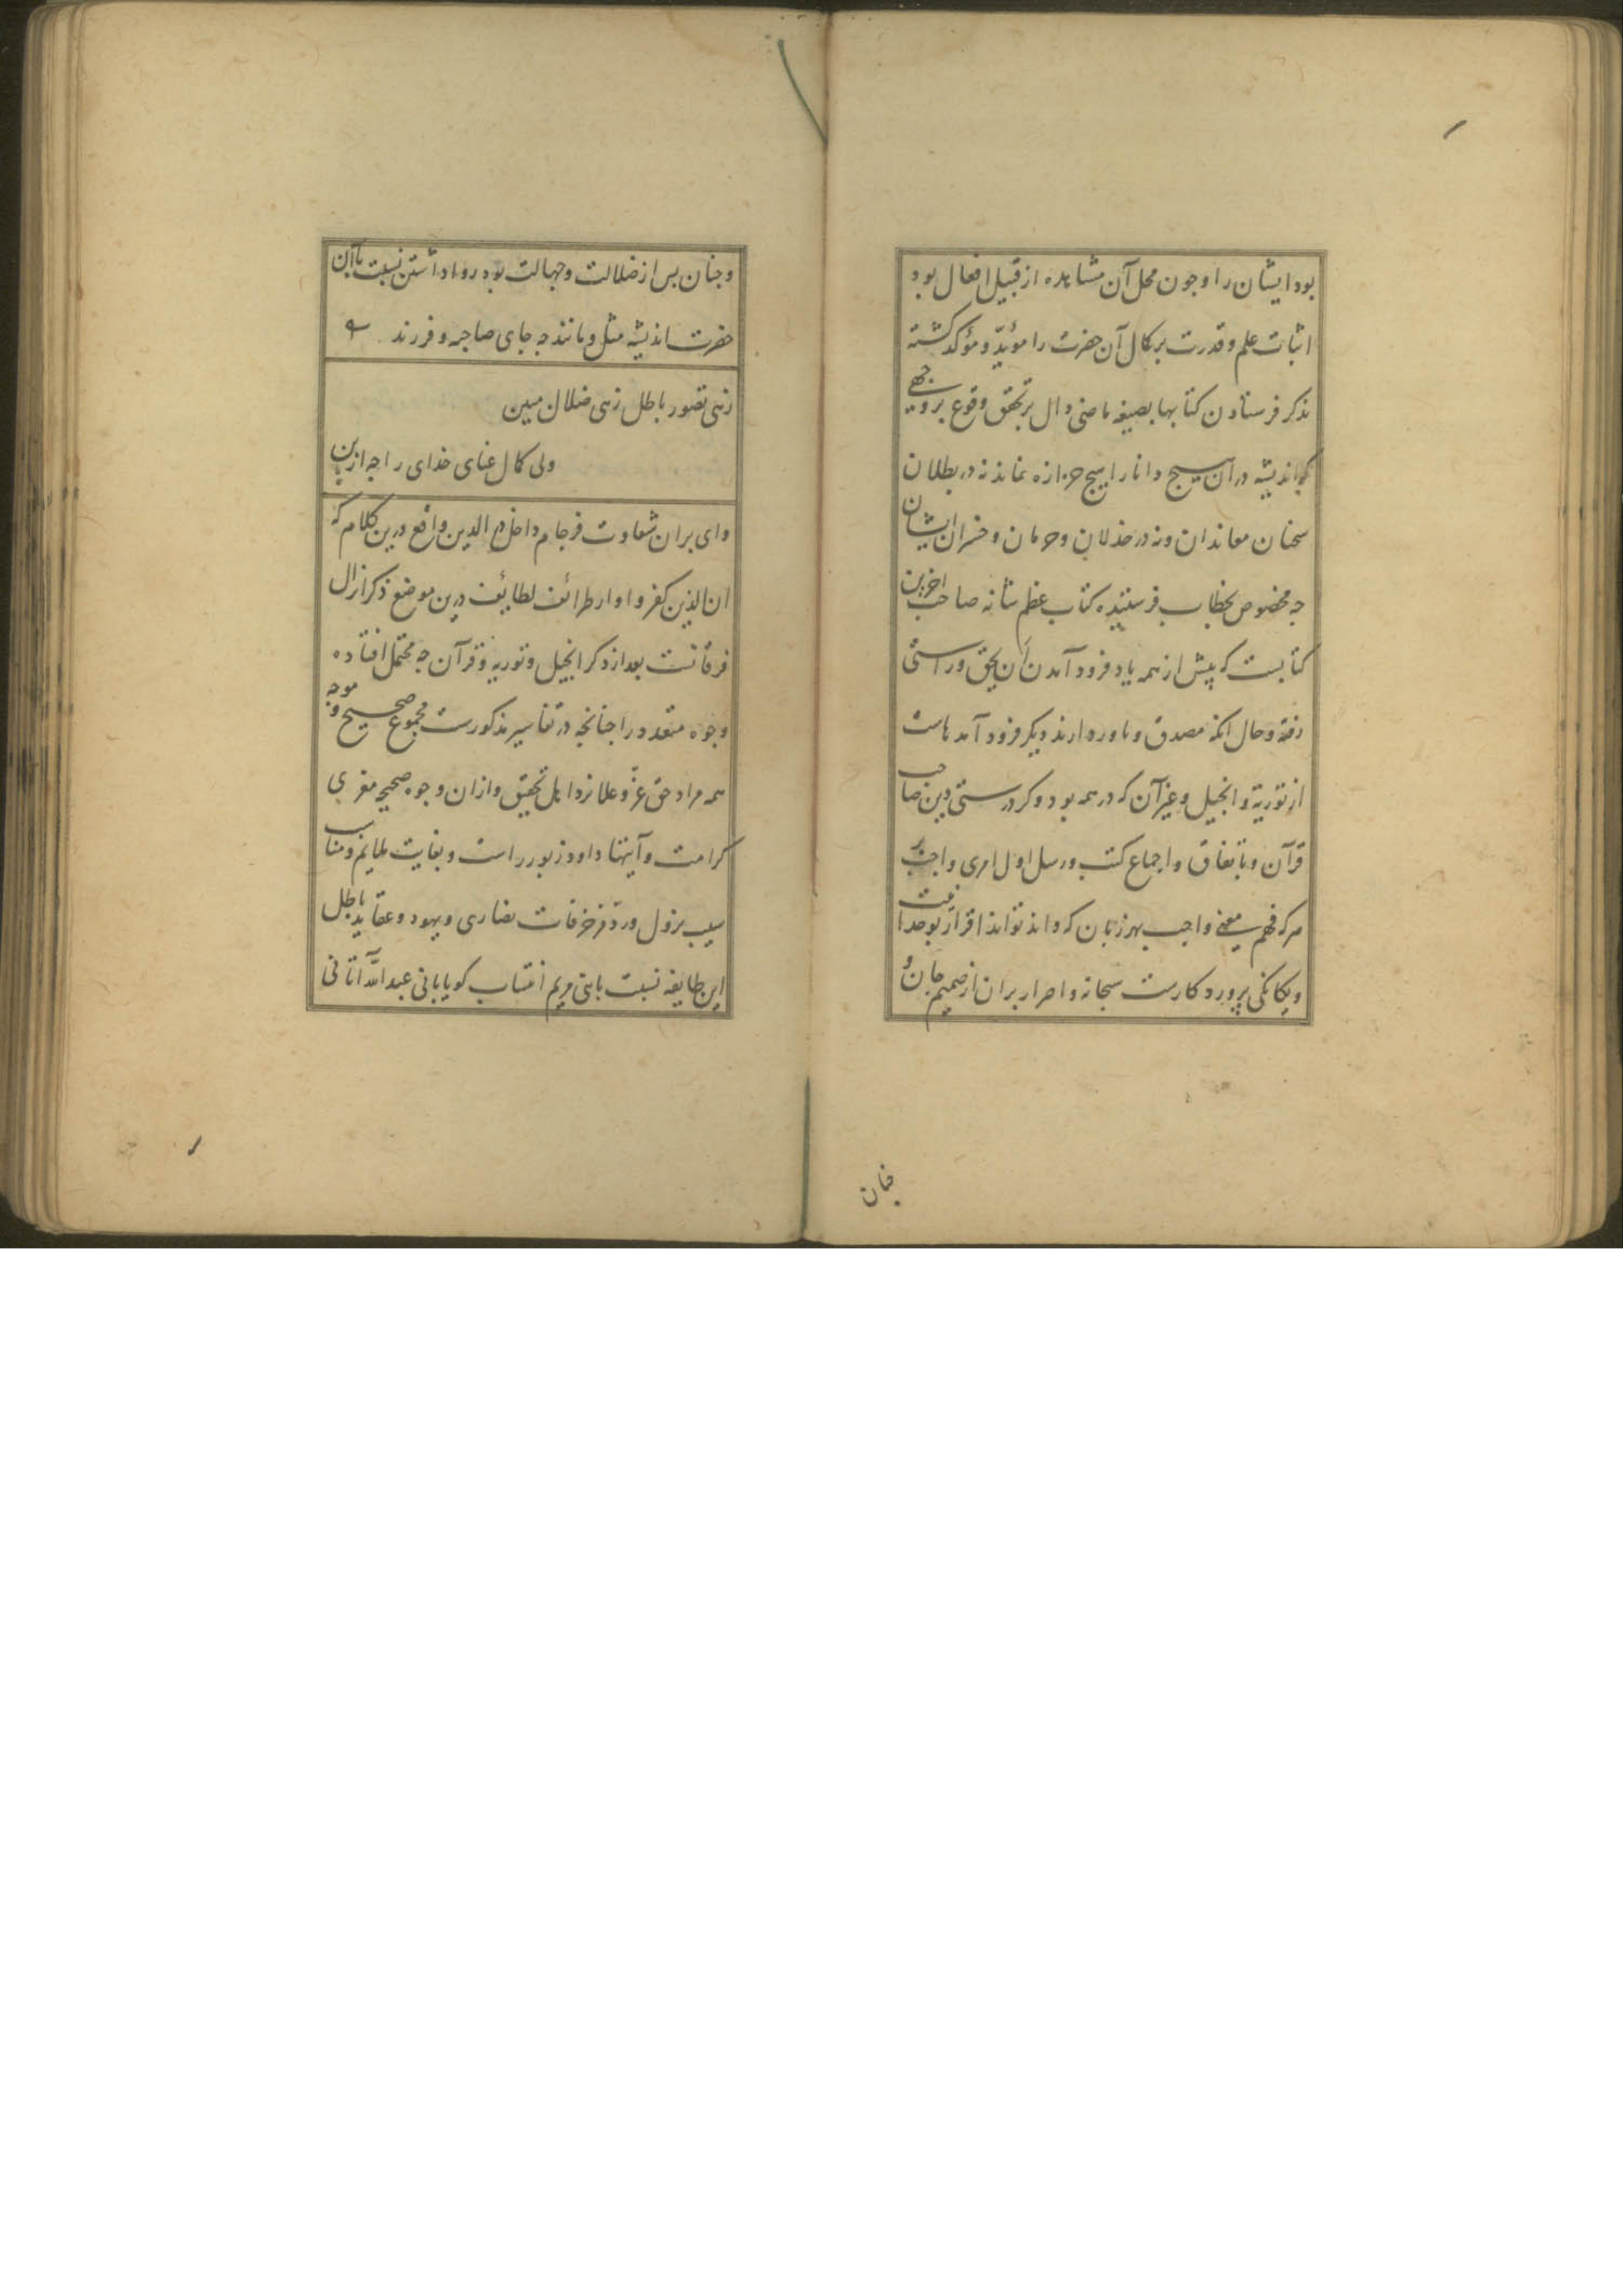 بود ایشان را و جون محل آن مشاهده از قبیل افعال بود
اثبات علم و قدرت بر کمال آن حضرت را مؤیّد و مؤکد کشته
بذکر فرستادن کتابها بصیغه ماضی دال بر تحقق وقوع بر وجهی
که اندیشه در آن هیج دانا را هیج حزازه نماند نه در بطلان
سخنان معاندان و نه در خذلان و حرمان و خسران ایشان
جه مخصوص بخطاب فرستنده کتاب عظم شانه صاحب آخرین
کتابیست که پیش از همه یاد فرود آمدن آن بحق و راستی
رفته و حال آنکه مصدق و باوردارنده دیکر فرود آمدهاست
از توریة و انجیل و غیر آن که در همه بود ذکر درستی دین صاحب
قرآن و باتفاق و اجماع کتب و رسل اول امری واجب بر
هرکه فهم معنی واجب بهر زبان که داند تواند اقرار بوحدانیت
و یکانکی پروردکارست سبحانه و اصرار بران از صمیم جان و
جنان
و جنان بس از ضلالت و جهالت بود روا داشتن نسبت باآن
حضرت اندیشه مثل و مانند جه جای صاحبه و فرزند
زهی تصور باطل زهی ضلال مبین
ولی کمال غنای خدای را جه ازین
وای بران شقاوت فرجام داخل در الدین واقع درین کلام که
ان الذین کفروا و از طرائف لطایف درین موضع ذکر انزال
فرقانست بعد از ذکر انجیل و توریه و قرآن جه محتمل افتاده
وجوه متعدد را جنانجه در تفاسیر مذکورست مجموع صحیح و موجه
همه مراد حق عزّ و علا نزد اهل تحقیق و ازان وجوه صحیح مغزی
کرامت و آتینا داود زبورا است و بغایت ملایم و مناسب
سبب نزول و ردّ مزخرفات نصاری و یهود و عقاید باطل
این طایفه نسبت بابن مریم انتساب کویا بانی عبد اللّه آتانی